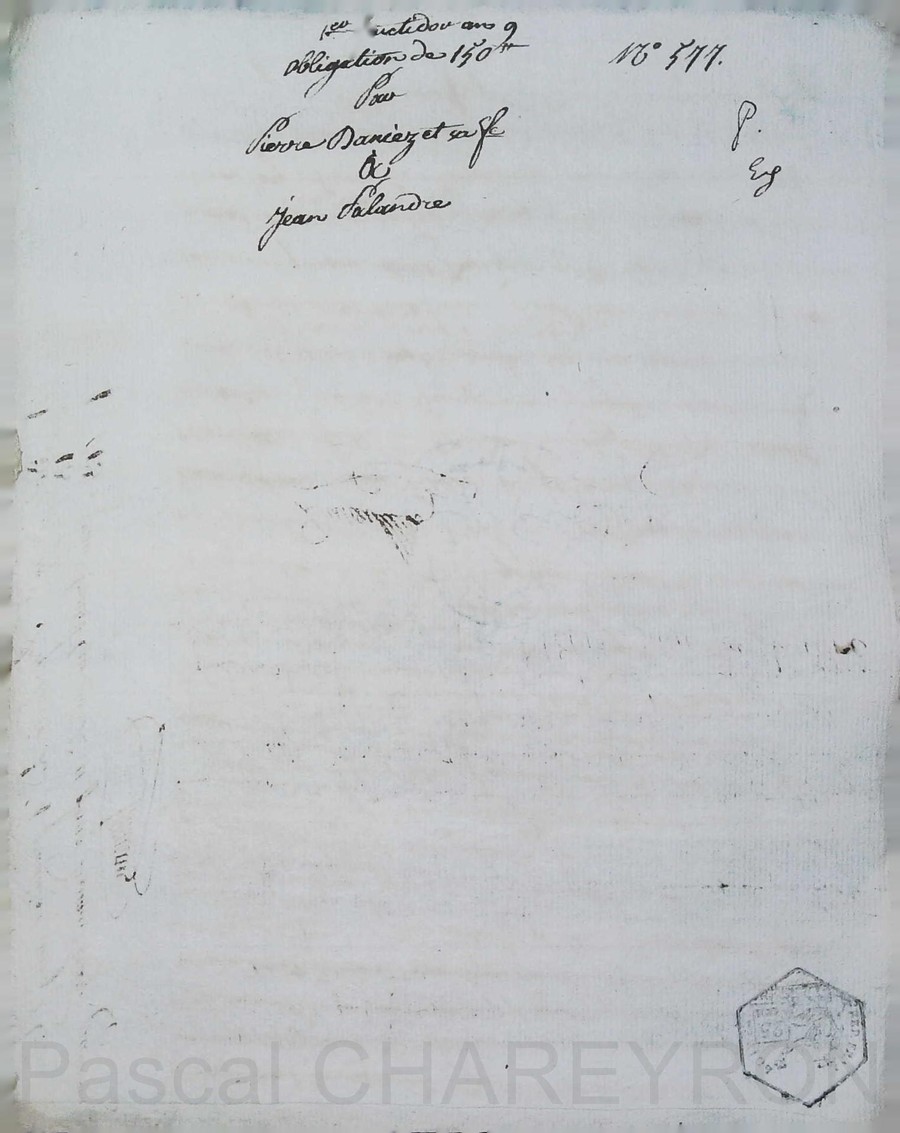 1er fructidor an 9
obligation de 150tt
N° 577.
Pour
Pierre Daniez et sa fe
P.
&
Eg
Jean Palandre
Pascal CHAREYRON